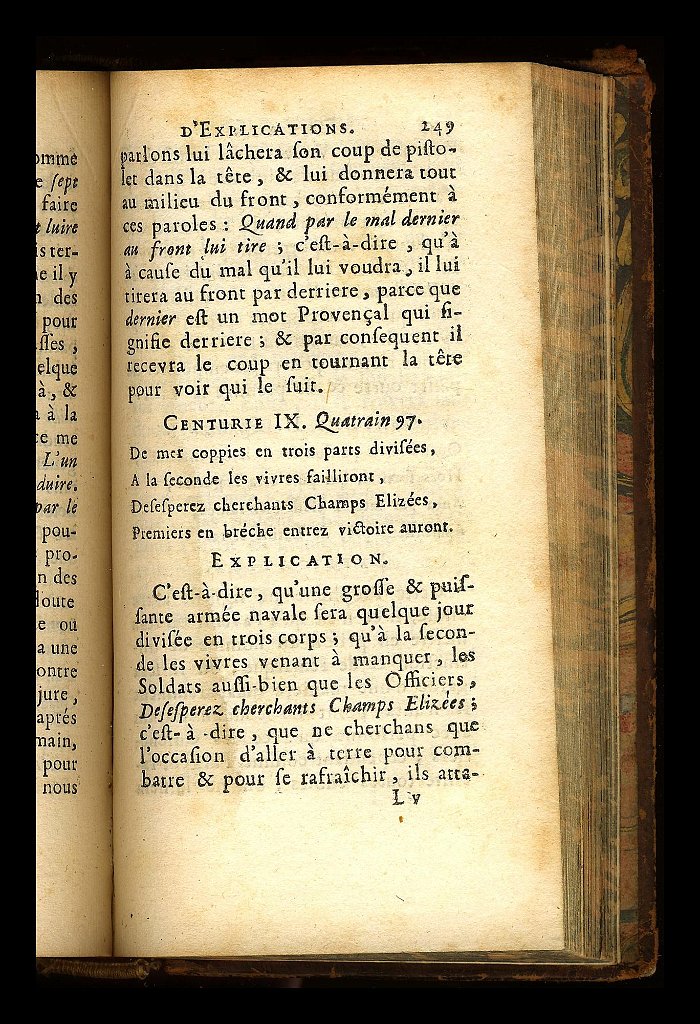 omme
e ſept
faire
t luire
is ter-
ne il y
n des
pour
aſſes ,
elque
à, &
a à la
te me
L'un
duire.
par le
pou-
pro-
n des
doute
e ou
a une
ontre
jure ,
aprés
main,
pour
nous
D'EXPLICATIONS. 249
parlons lui lâchera ſon coup de piſto-
let dans la tête, & lui donnera tout
au milieu du front, conformément à
ces paroles : Quand par le mal dernier
au front lui tire ; c'eſt-à-dire, qu'à
à cauſe du mal qu'il lui voudra, il lui
tirera au front par derriere, parce que
dernier eſt un mot Provençal qui ſi-
gnifie derriere ; & par conſequent il
recevra le coup en tournant la tête
pour voir qui le ſuit.
CENTURIE IX. Quatrain 97.
De mer coppies en trois parts diviſées,
A la ſeconde les vivres failliront,
Deſeſperez cherchants Champs Elizées,
Premiers en bréche entrez victoire auront.
EXPLICATION.
C'eſt-à-dire, qu'une groſſe & puiſ-
ſante armée navale ſera quelque jour
diviſée en trois corps ; qu'à la ſecon-
de les vivres venant à manquer, les
Soldats auſſi-bien que les Officiers,
Deſeſperez cherchants Champs Elizées ;
c'eſt-à-dire, que ne cherchans que
l'occaſion d'aller à terre pour com-
batre & pour ſe rafraîchir, ils atta-
L v